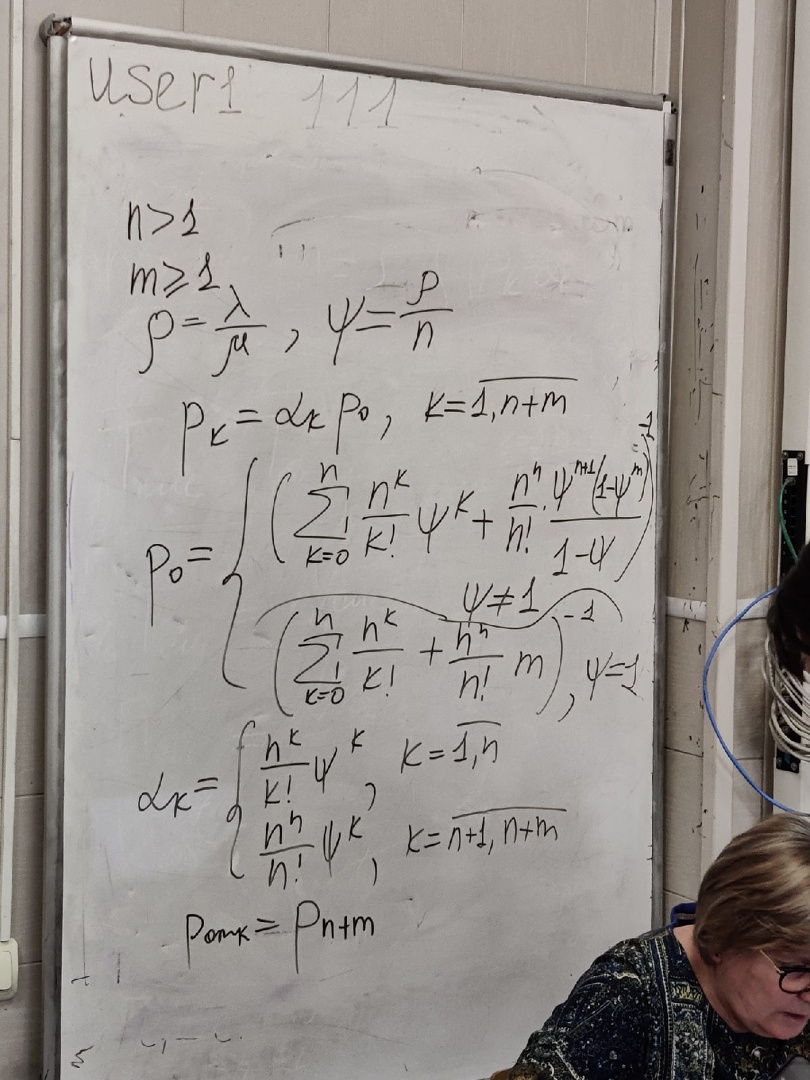 user1 111
n>1
m≥1
ρ=λ/μ, ψ=ρ/n
p_k=α_k p_0, k=1,n+m
p_0={(∑_{k=0}^{n} n^k/k! ψ^k + n^n/n! · ψ^{n+1}(1-ψ^m)/(1-ψ))^{-1}
ψ≠1
(∑_{k=0}^{n} n^k/k! + n^n/n! m)^{-1}, ψ=1
α_k={n^k/k! ψ^k, k=1,n
n^n/n! ψ^k, k=n+1,n+m
p_отк=p_{n+m}